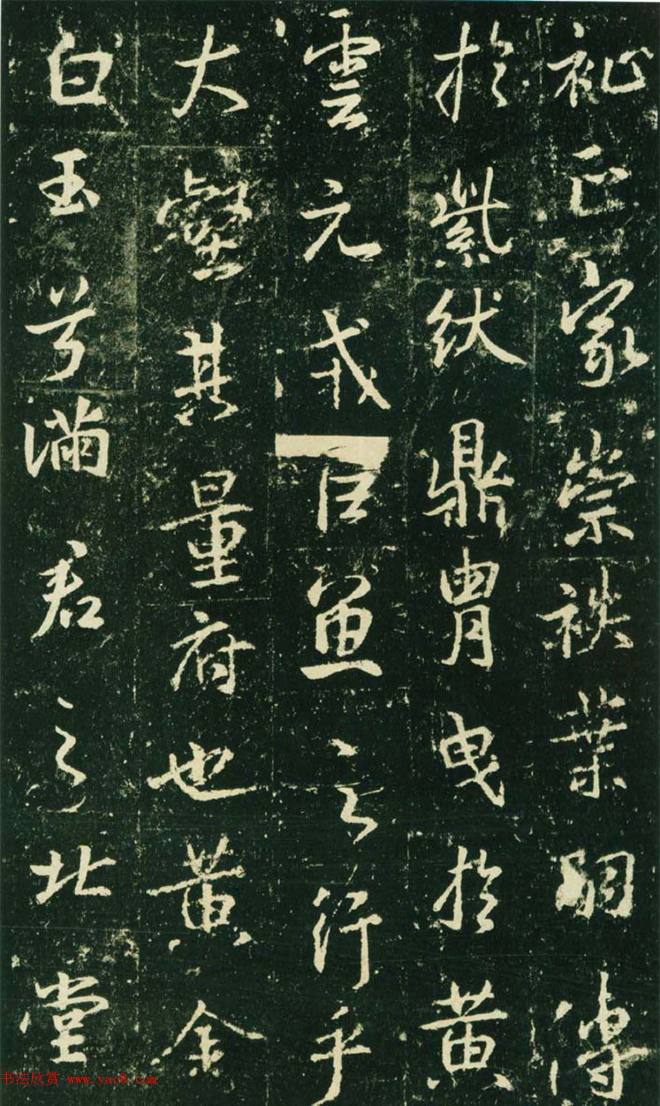 祉正家崇袟葉明傳
於紫紱鼎胄曳於黃
雲元戎巨魚言行乎
大壑其量府也黃金
白玉兮滿君之北堂
书法欣赏 www.yac8.com